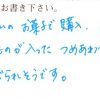 お書き下さい。
いの お菓子で購入、
ものが入った つめあわ
げられそうです。